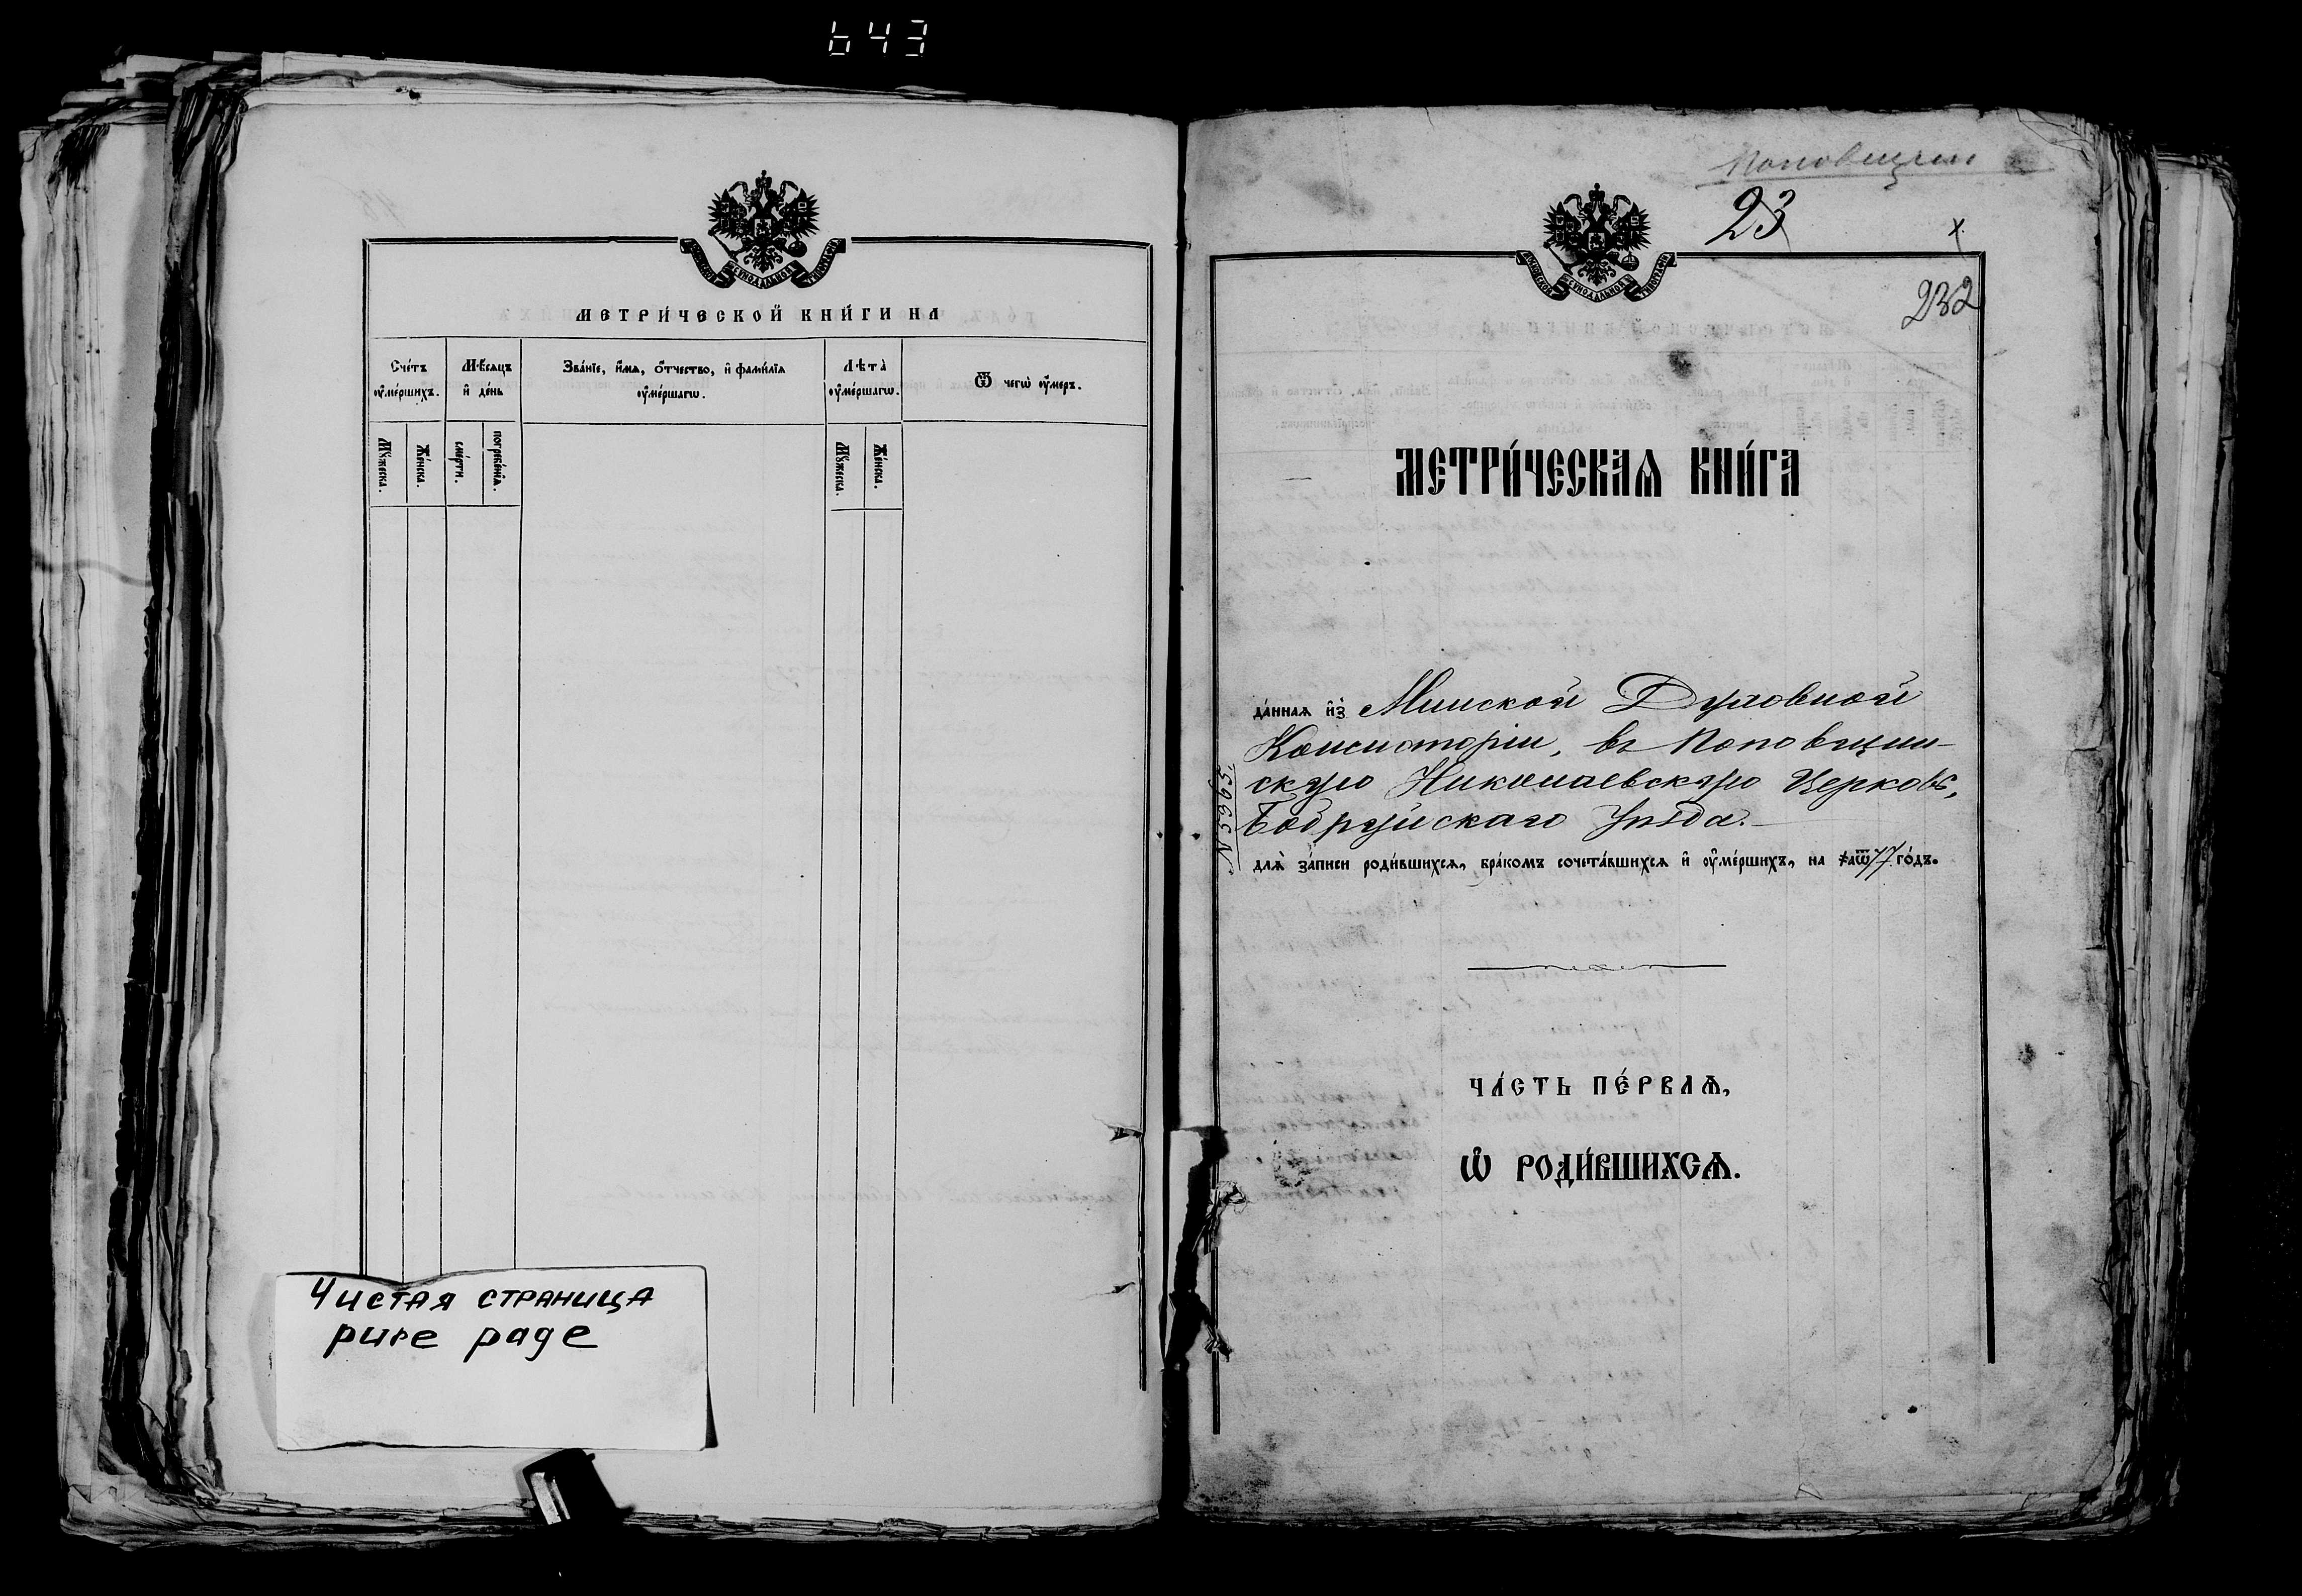 643
МЕТРИ́ЧЕСКОЙ КНИ́ГИ НА
Сче́тъ ᲂу҆ме́ршихъ.
Мѣ́сѧцъ и҆ де́нь
Зва́нїе, и҆́мѧ, ѻ҆́тчество, и҆ фами́лїѧ ᲂу҆ме́ршагѡ.
Лѣта̀ ᲂу҆ме́ршагѡ.
Ѿ чегѡ̀ ᲂу҆́меръ.
Мꙋ́жеска.
Же́нска.
сме́рти.
погребе́нїѧ.
Мꙋ́жеска.
Же́нска.
Чистая страница
pure page
Поповщин
23
х
232
МЕТРИ́ЧЕСКАѦ КНИ́ГА
да́ннаѧ и҆з̾ Минской Духовной
Консисторіи, въ Поповщин-
скую Николаевскую Церковь,
Бобруйскаго Уѣзда.
длѧ̀ за́писи роди́вшихсѧ, бра́комъ сочета́вшихсѧ и҆ ᲂу҆ме́ршихъ, на ҂аѿ77 го́дъ.
N 5595
ЧА́СТЬ ПЕ́РВАѦ,
Ѡ҆ РОДИ́ВШИХСѦ.